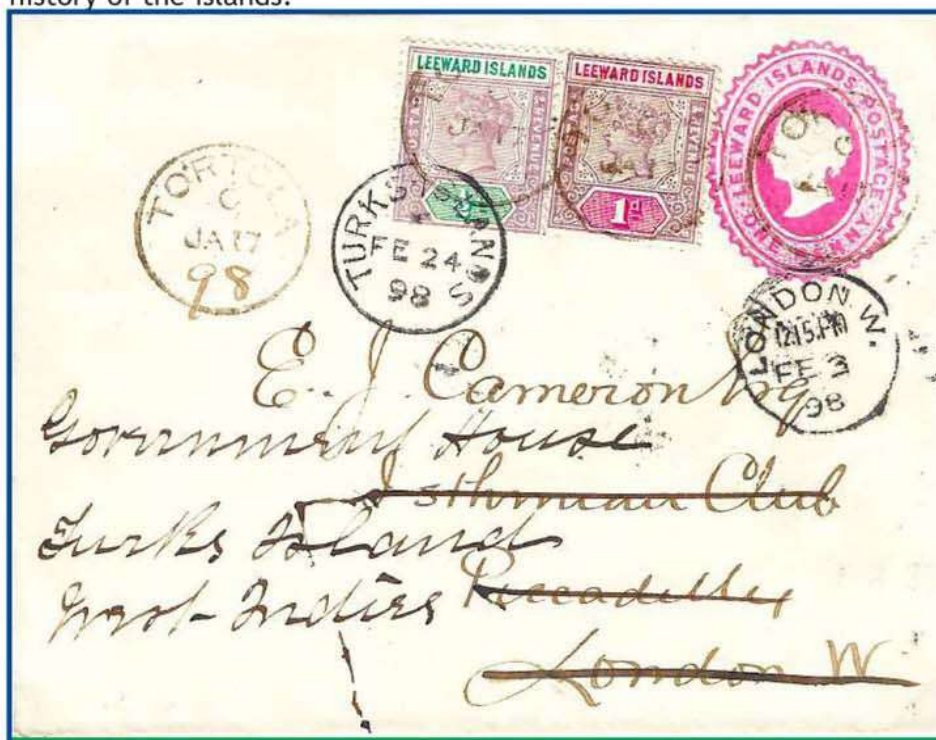 history of the islands.
LEEWARD ISLANDS
POSTAGE & REVENUE
LEEWARD ISLANDS
POSTAGE & REVENUE
1d
LEEWARD ISLANDS POSTAGE
ONE PENNY
TORTOLA
C
JA 17
98
TURKS ISLANDS
FE 24
98
LONDON W.
12.15.PM
FE 3
98
E. J. Cameron Esq
Government House
Isthmian Club
Turks Island
West Indies Piccadilly
London W